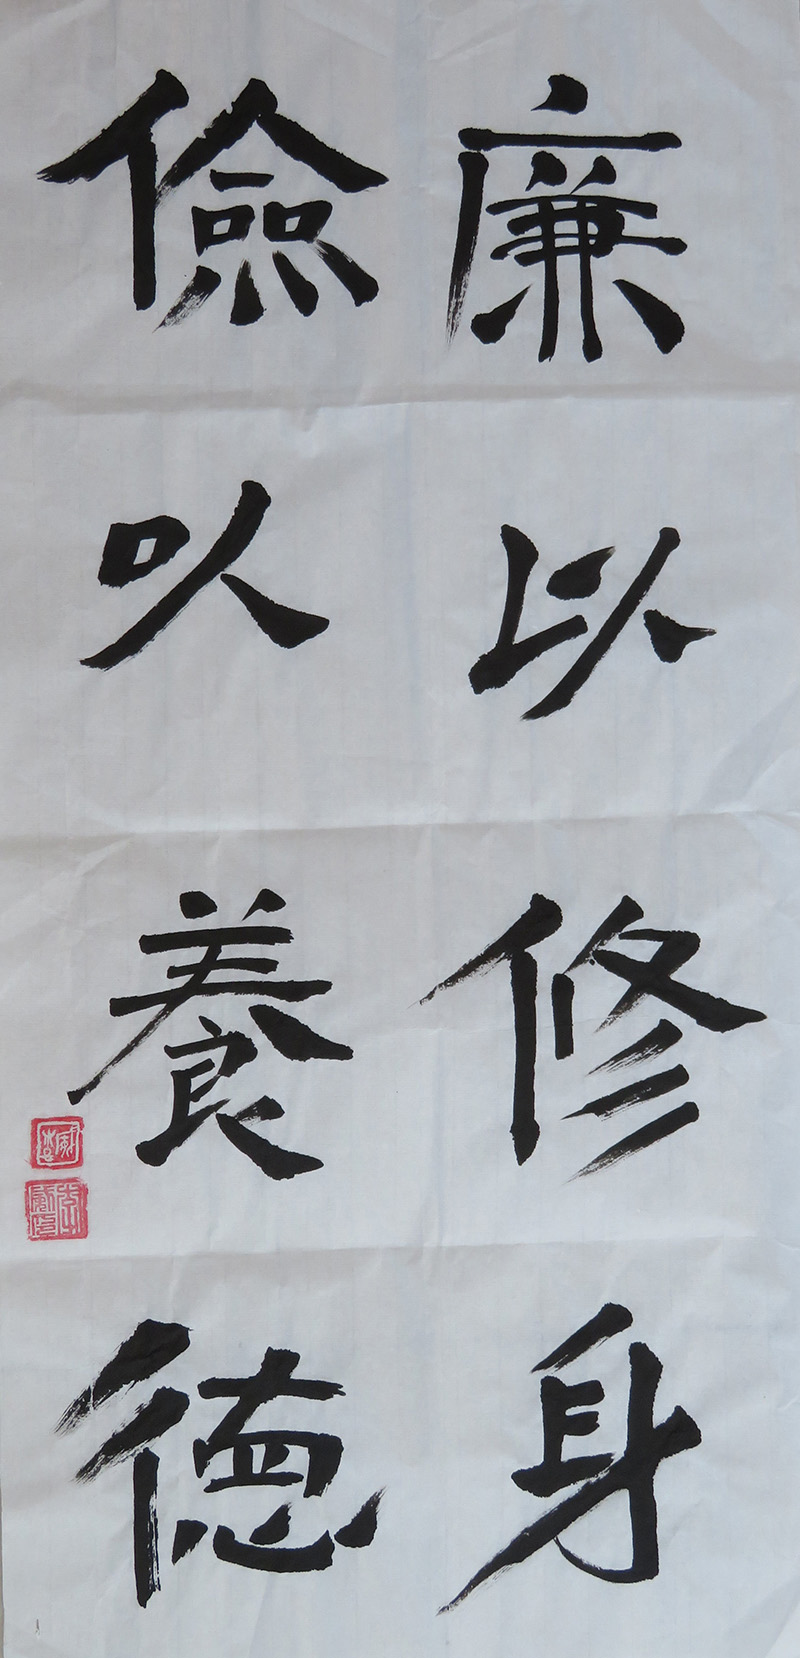 廉以修身
儉以養德